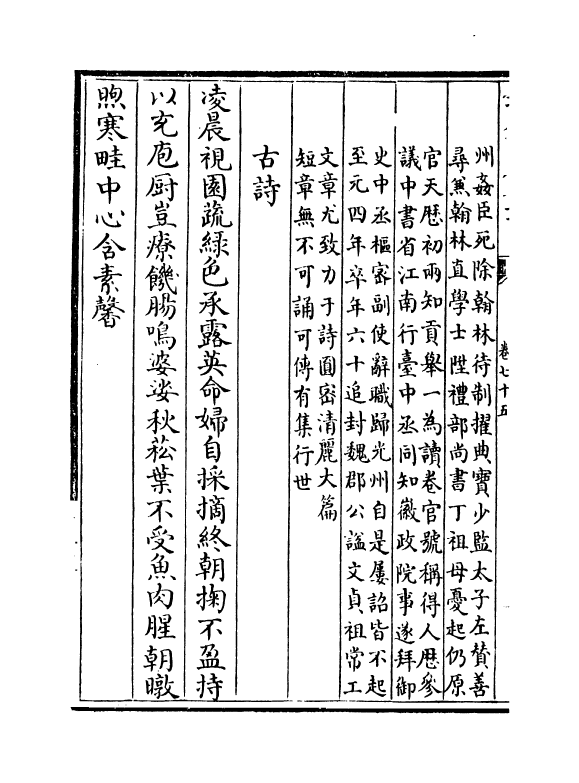 卷七十五
州姦臣死除翰林待制擢典寶少監太子左贊善
尋兼翰林直學士陞禮部尚書丁祖母憂起仍原
官天歴初兩知貢舉一為讀卷官號稱得人歴參
議中書省江南行臺中丞同知徽政院事遂拜御
史中丞樞密副使辭職歸光州自是屢詔皆不起
至元四年卒年六十追封魏郡公謚文貞祖常工
文章尤致力于詩圓密清麗大篇
短章無不可誦可傳有集行世
古詩
凌晨視園蔬綠色承露英命婦自採摘終朝掬不盈持
以充庖厨豈療饑腸鳴婆娑秋菘葉不受魚肉腥朝暾
煦寒畦中心含素馨